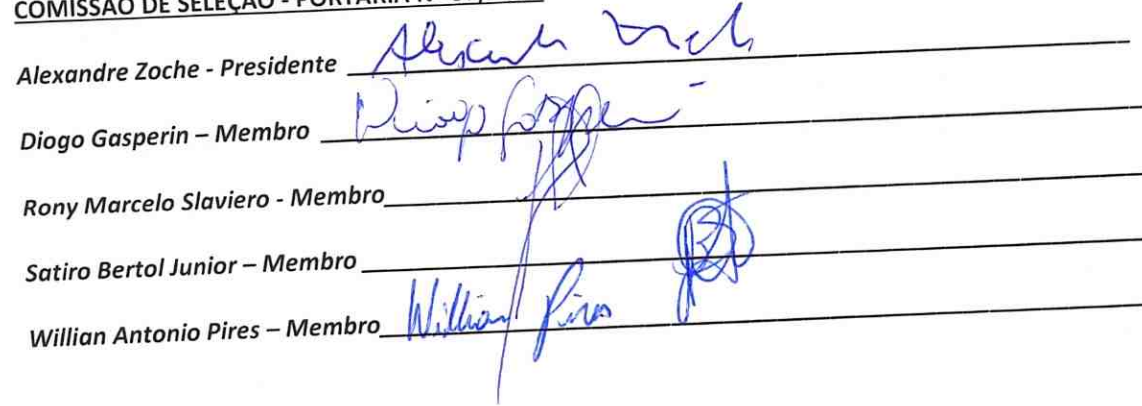 COMISSÃO DE SELEÇÃO - PORTARIA
Alexandre Zoche - Presidente
Diogo Gasperin – Membro Diogo Gasperin
Rony Marcelo Slaviero - Membro
Satiro Bertol Junior – Membro
Willian Antonio Pires – Membro Willian Pires